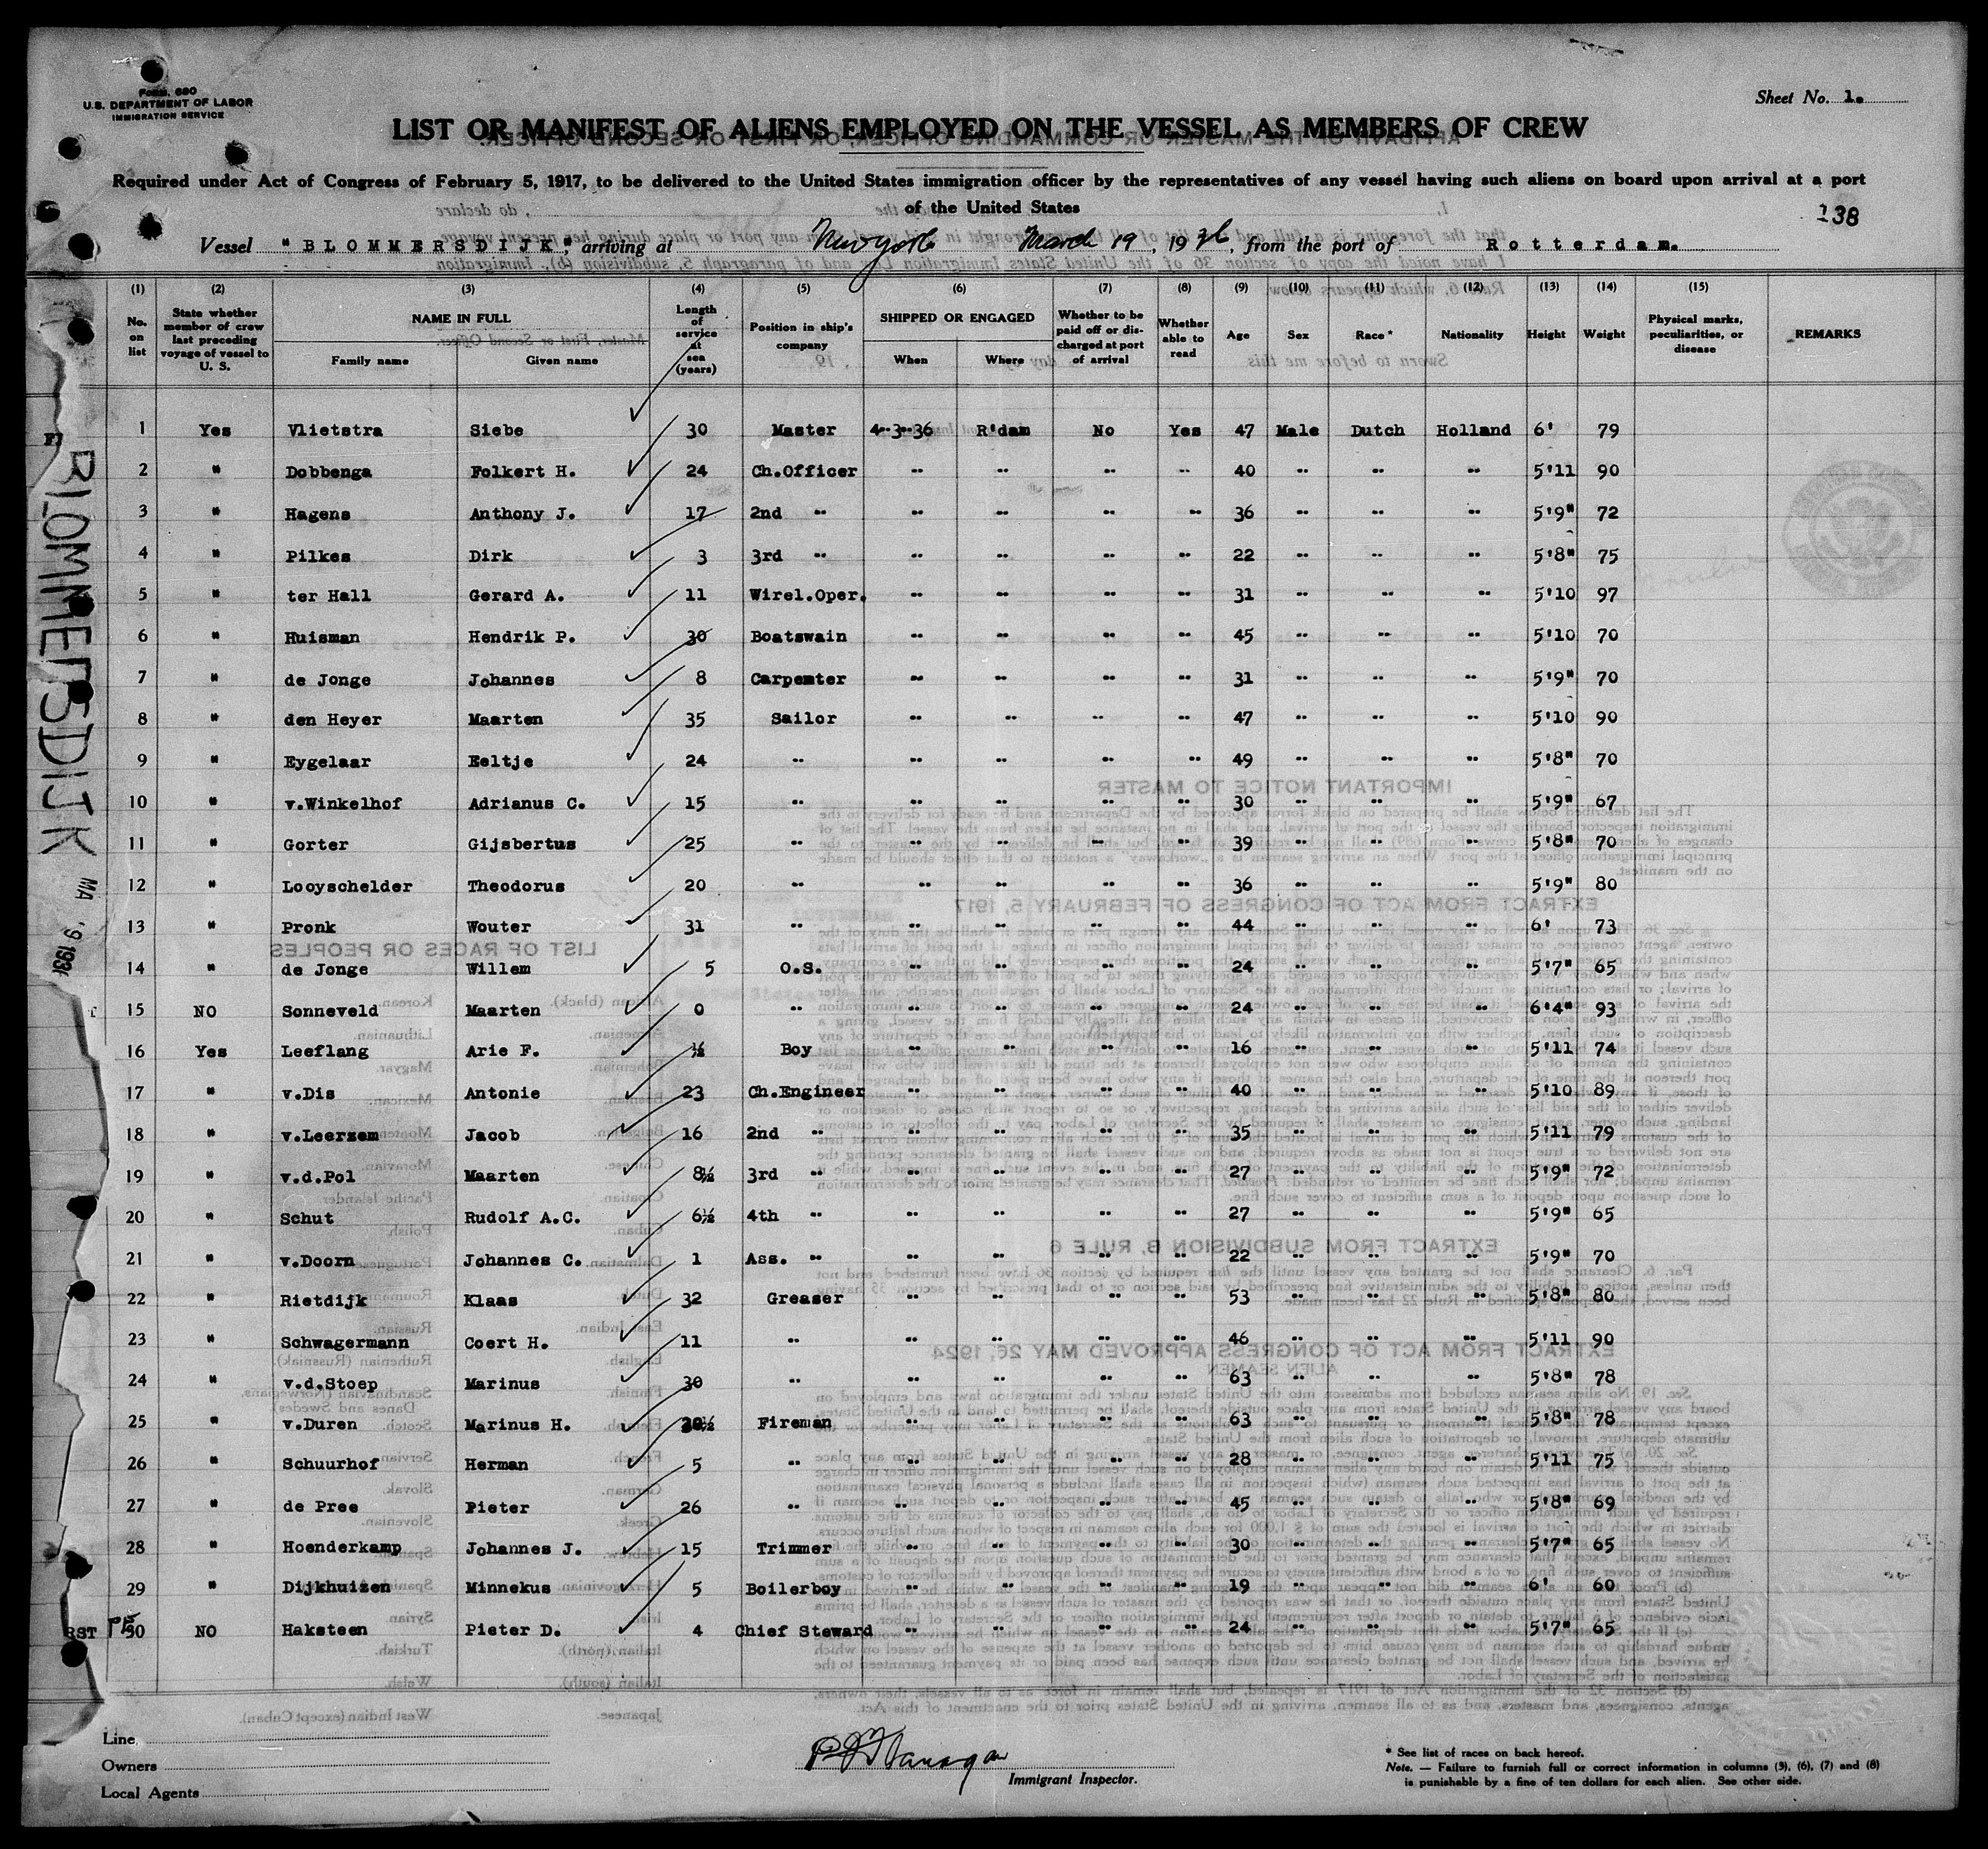 Form 680
U.S. DEPARTMENT OF LABOR
IMMIGRATION SERVICE
Sheet No. 1.
LIST OR MANIFEST OF ALIENS EMPLOYED ON THE VESSEL AS MEMBERS OF CREW
Required under Act of Congress of February 5, 1917, to be delivered to the United States immigration officer by the representatives of any vessel having such aliens on board upon arrival at a port
of the United States
138
Vessel "BLOMMERSDIJK", arriving at New York March 19, 1936, from the port of Rotterdam.
(1) (2) (3) (4) (5) (6) (7) (8) (9) (10) (11) (12) (13) (14) (15)
No. on list | State whether member of crew last preceding voyage of vessel to U. S. | NAME IN FULL Family name Given name | Length of service at sea (years) | Position in ship's company | SHIPPED OR ENGAGED When Where | Whether to be paid off or discharged at port of arrival | Whether able to read | Age | Sex | Race* | Nationality | Height | Weight | Physical marks, peculiarities, or disease | REMARKS
1 Yes Vlietstra Siebe 30 Master 4-3-36 R'dam No Yes 47 Male Dutch Holland 6' 79
2 " Dobbenga Folkert H. 24 Ch.Officer " " " " 40 " " " 5'11 90
3 " Hagens Anthony J. 17 2nd " " " " " 36 " " " 5'9" 72
4 " Pilkes Dirk 3 3rd " " " " " 22 " " " 5'8" 75
5 " ter Hall Gerard A. 11 Wirel.Oper. " " " " 31 " " " 5'10 97
6 " Huisman Hendrik P. 30 Boatswain " " " " 45 " " " 5'10 70
7 " de Jonge Johannes 8 Carpenter " " " " 31 " " " 5'9" 70
8 " den Heyer Maarten 35 Sailor " " " " 47 " " " 5'10 90
9 " Eygelaar Eeltje 24 " " " " " 49 " " " 5'8" 70
10 " v.Winkelhof Adrianus C. 15 " " " " " 30 " " " 5'9" 67
11 " Gorter Gijsbertus 25 " " " " " 39 " " " 5'8" 70
12 " Looyschelder Theodorus 20 " " " " " 36 " " " 5'9" 80
13 " Pronk Wouter 31 " " " " " 44 " " " 6' 73
14 " de Jonge Willem 5 O.S. " " " " 24 " " " 5'7" 65
15 NO Sonneveld Maarten 0 " " " " " 24 " " " 6'4" 93
16 Yes Leeflang Arie F. ½ Boy " " " " 16 " " " 5'11 74
17 " v.Dis Antonie 23 Ch.Engineer " " " " 40 " " " 5'10 89
18 " v.Leerzem Jacob 16 2nd " " " " " 35 " " " 5'11 79
19 " v.d.Pol Maarten 8½ 3rd " " " " " 27 " " " 5'9" 72
20 " Schut Rudolf A.C. 6½ 4th " " " " " 27 " " " 5'9" 65
21 " v.Doorn Johannes C. 1 Ass. " " " " " 22 " " " 5'9" 70
22 " Rietdijk Klaas 32 Greaser " " " " 53 " " " 5'8" 80
23 " Schwagermann Coert H. 11 " " " " " 46 " " " 5'11 90
24 " v.d.Stoep Marinus 30 " " " " " 63 " " " 5'8" 78
25 " v.Duren Marinus H. Fireman " " " " 63 " " " 5'8" 78
26 " Schuurhof Herman 5 " " " " " 28 " " " 5'11 75
27 " de Pree Pieter 26 " " " " " 45 " " " 5'8" 69
28 " Hoenderkamp Johannes J. 15 Trimmer " " " " 30 " " " 5'7" 65
29 " Dijkhuizen Minnekus 5 Boilerboy " " " " 19 " " " 6' 60
30 NO Haksteen Pieter D. 4 Chief Steward " " " " 24 " " " 5'7" 65
BLOMMERSDIJK
Line
Owners
Local Agents
P J Flanagan
Immigrant Inspector.
* See list of races on back hereof.
Note. — Failure to furnish full or correct information in columns (3), (6), (7) and (8)
is punishable by a fine of ten dollars for each alien. See other side.